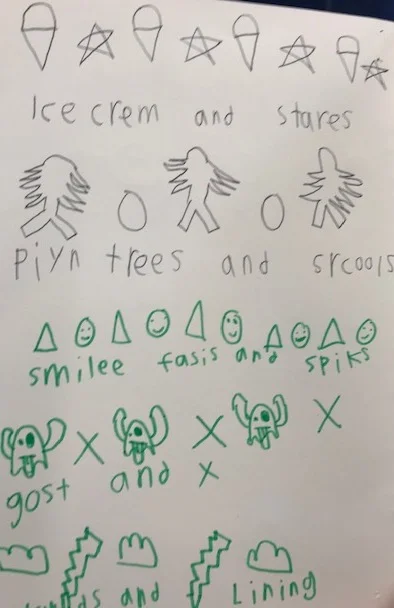 Ice crem and stares
piyn trees and srcools
smilee fasis and spiks
gost and x
and Lining